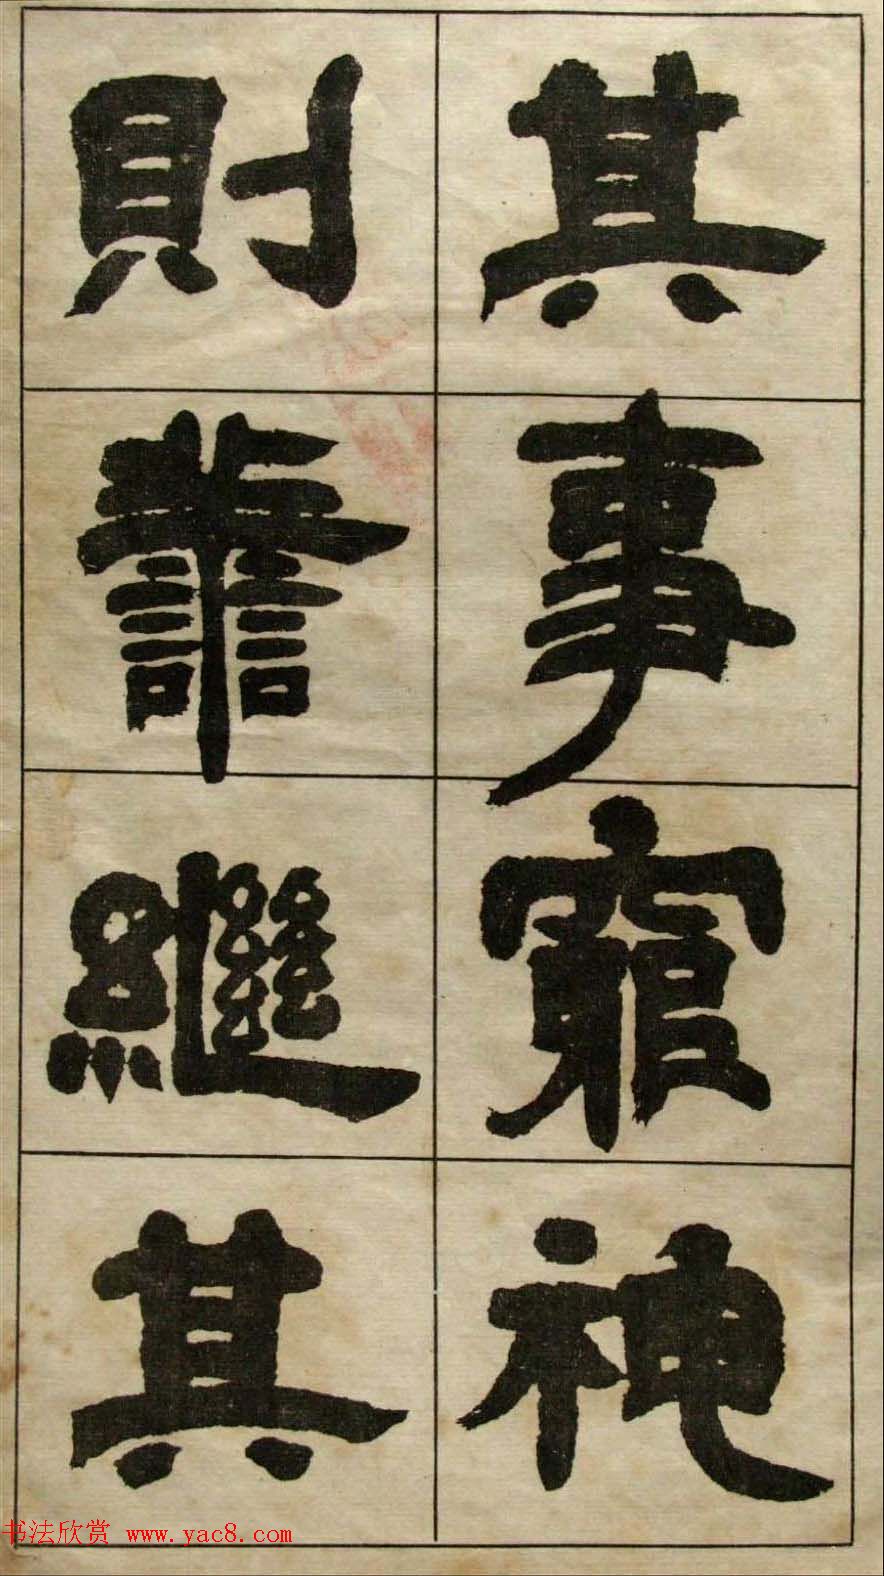 其事竆神
則譱繼其
书法欣赏 www.yac8.com